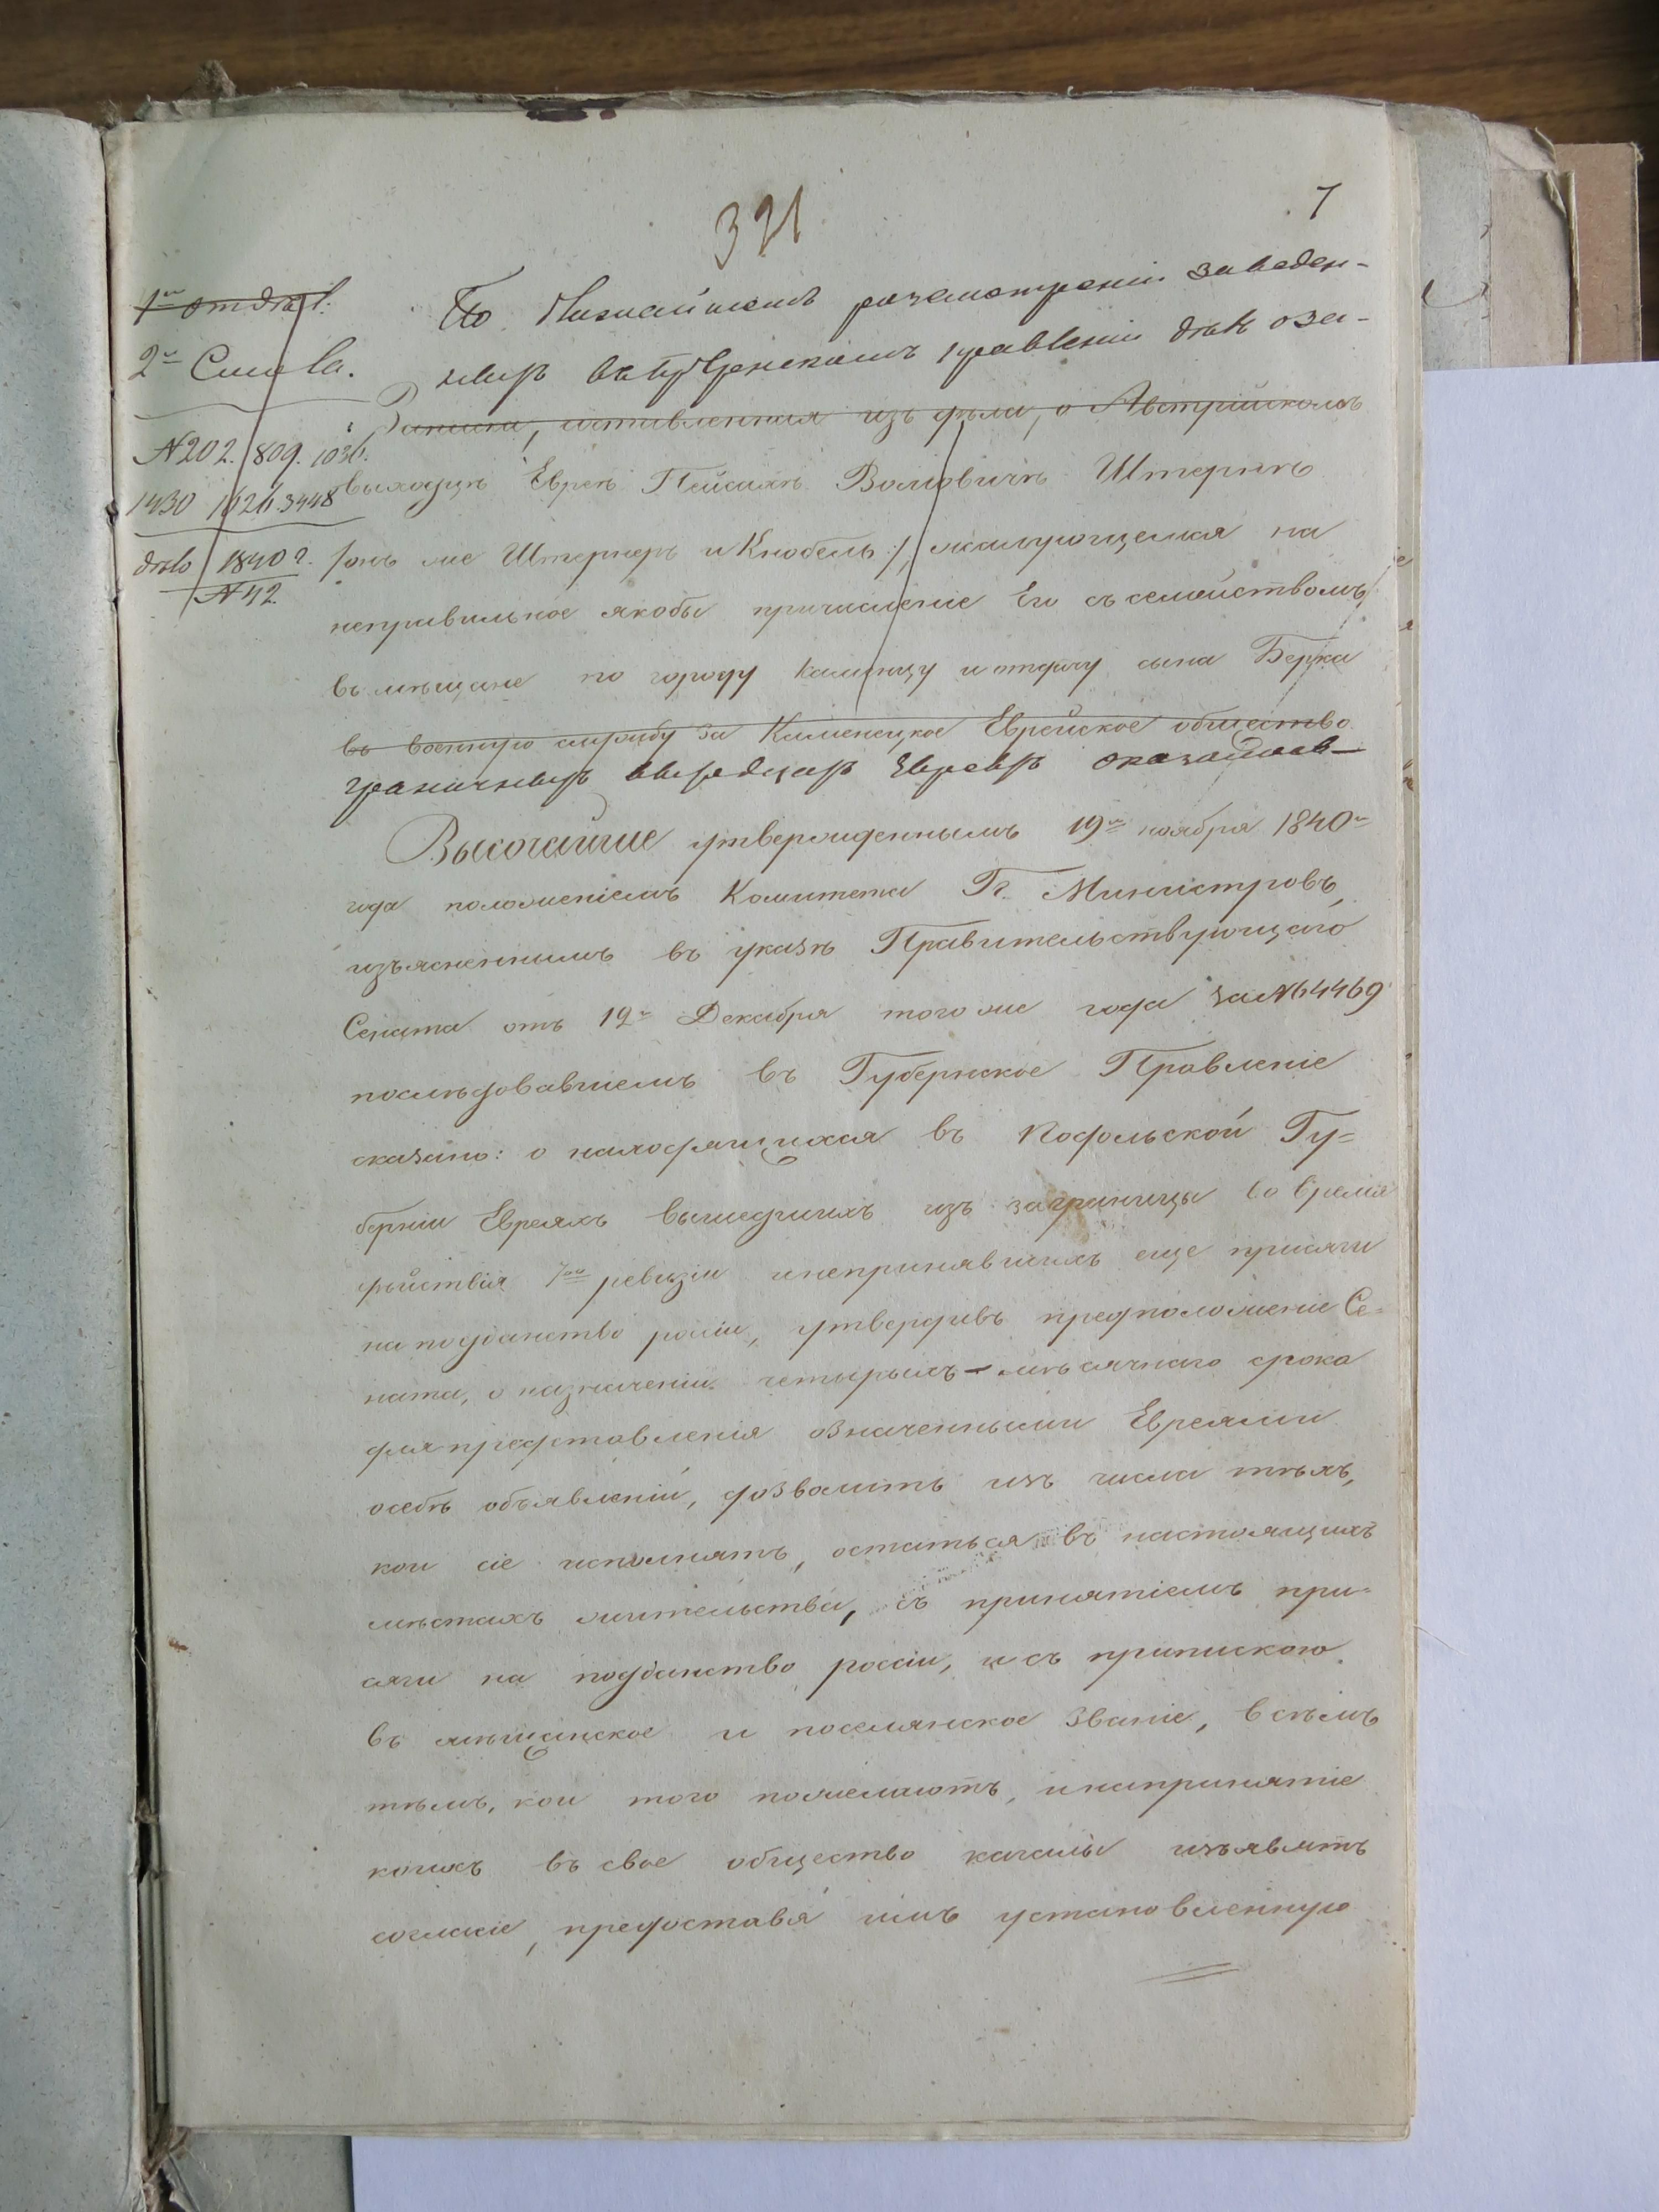 7
321
1го отдѣл.
2го Стола.
№ 202. 809. 1036.
1430 1626. 3448
дѣло 1840 г.
№ 42.
По ближайшемъ розсмотреніи заведен-
ныхъ въ Губернскомъ правленіи дѣлъ о за-
Записка, составленная изъ дѣла, о Австрійскомъ
выходцѣ Евреѣ Пейсахѣ Волковичѣ Штернѣ
/онъ же Штернеръ и Кнобель:/, жалующемся на
неправильное якобы причисленіе Его съ семействомъ
въ мѣщане по городу Каменцу и отдачу сына Берка
въ военную службу за Каменецкое Еврейское общество
граничныхъ выходцахъ Евреяхъ оказалось
Высочайше утвержденнымъ 19го ноября 1840го
года положеніемъ Комитета Гг. Министровъ,
изъясненнымъ въ указѣ Правительствующаго
Сената отъ 12го Декабря того же года за № 64469
послѣдовавшемъ въ Губернское Правленіе
сказано: о находящихся въ Подольской Гу=
берніи Евреяхъ вышедшихъ изъ заграницы во время
дѣйствія 7ой ревизіи и непринявшихъ еще присяги
на подданство росіи, утвердивъ предположеніе Се=
ната, о назначеніи четырехъ-мѣсячнаго срока
для представленія означенными Евреями
о себѣ объявленій, дозволить изъ числа тѣхъ,
кои сіе исполнятъ, остаться въ настоящихъ
мѣстахъ жительства, съ принятіемъ при-
сяги на подданство россіи, и съ припискою
въ мѣщанское и поселянское званіе, всѣмъ
тѣмъ, кои того пожелаютъ, и на принятіе
коихъ въ свое общество кагалы изъявятъ
согласіе, предоставя имъ установленную